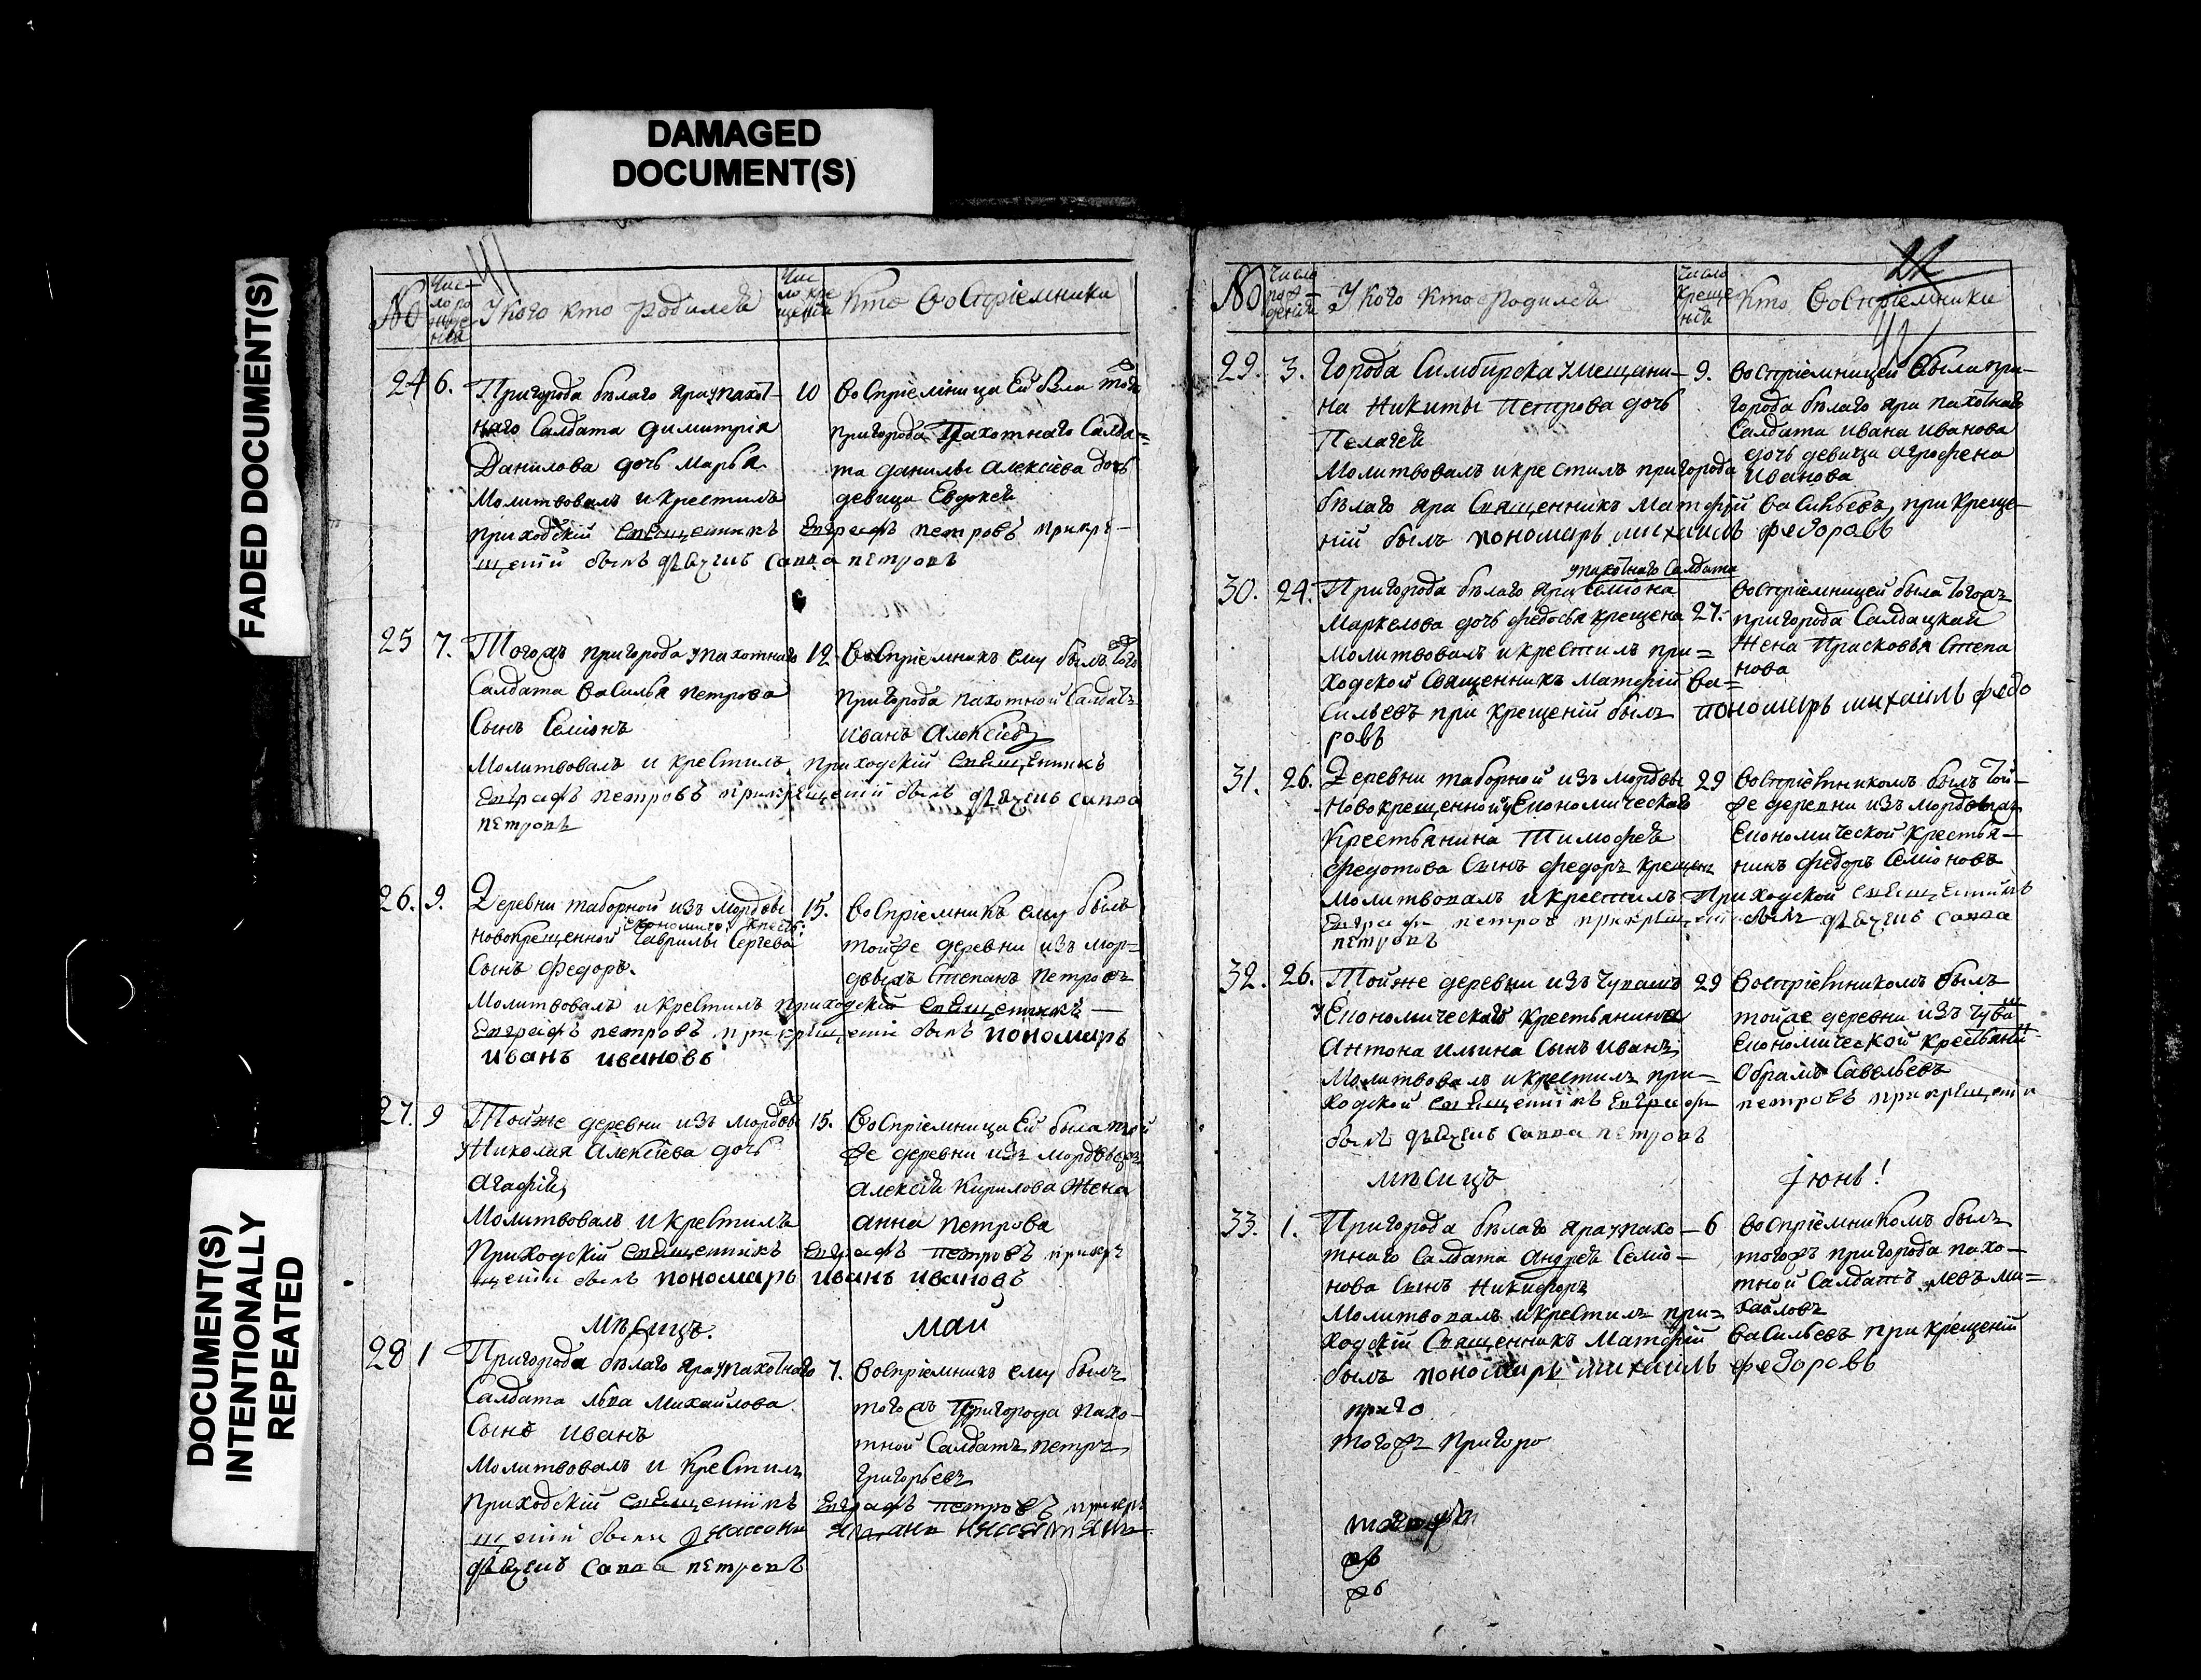 DAMAGED
DOCUMENT(S)
FADED DOCUMENT(S)
DOCUMENT(S)
INTENTIONALLY
REPEATED
41
№
Чис-
ло ро
жде
нія
У кого кто родился
Чис
ло кре
щенія
Кто воспріемники
24 6. Пригорода бѣлаго яра у пахот-
наго Салдата Димитрія
Данилова дочь Марья
Молитвовалъ и крестилъ
приходскій священникъ Евграфъ петровъ при кре-
щеніи былъ дьячекъ савва петровъ
10 воспріемница ей была того ж
пригорода Пахотнаго Салда=
та данилы Алексіева дочь
девица Евдокея
25 7. Тогожъ пригорода у пахотнаго
Салдата Василья петрова
Сынъ Семіонъ
Молитвовалъ и крестилъ приходскій священникъ
Евграфъ петровъ при крещеніи былъ дьячекъ савва
петровъ
12 воспріемникъ ему былъ того ж
пригорода пахотной Салдатъ
Иванъ Алексіевъ
26. 9. Деревни таборной изъ мордвы
новокрещенной економич: крест: Гаврилы Сергева
Сынъ Федоръ.
Молитвовалъ и крестилъ приходскій священникъ
Евграфъ петровъ при крещеніи былъ пономарь
иванъ ивановъ
15. воспріемникъ ему былъ
тойже деревни изъ мор=
двы жъ Степанъ Петровъ
27. 9 Тойже деревни изъ мордвы ж
у Николая Алексіева дочь
Агафія
Молитвовалъ и крестилъ
Приходскій священникъ Евграфъ петровъ при кре
щеніи былъ пономарь иванъ ивановъ
15. воспріемница ей была той
же деревни изъ мордвы жъ
Алексія Кирилова Жена
анна петрова
мѣсицъ. маи
28 1 Пригорода бѣлаго яра у пахотнаго
Салдата льва Михайлова
Сынъ иванъ
Молитвовалъ и крестилъ
приходскій священникъ Евграфъ петровъ при кре
щеніи были
дьячекъ савва петровъ
7. воспріемникъ ему былъ
тогожъ Пригорода пахо-
тной Салдатъ петръ
григорьевъ
22
42
№
Число
рож-
денія
У кого кто родился
Число
Креще
нія
Кто воспріемники
29. 3. Города Симбирска у мещани-
на Никиты Петрова дочь
Пелагея
Молитвовалъ и крестилъ пригорода
бѣлаго яра Священникъ Матфій Васильевъ, при креще-
ніи былъ пономарь михаилъ федоровъ
9. воспріемницей была при-
города бѣлаго яра пахотнаго
Салдата ивана иванова
дочь девица агрофена
иванова
30. 24. Пригорода бѣлаго яра у пахотнаго Салдата Семіона
Маркелова дочь федосья крещена
молитвовалъ и крестилъ при=
ходской Священникъ Матфій Ва=
сильевъ при крещеніи былъ пономарь михаилъ федо
ровъ
27. воспріемницей была тогожъ
пригорода Салдацкая
Жена Прасковья Степа
нова
31. 26. Деревни таборной изъ мордвы
новокрещенной у Економическаго
Крестьянина Тимофея
Федотова Сынъ федоръ крещенъ
молитвовалъ и крестилъ Приходской священникъ
Евграфъ петровъ при крещеніи былъ дьячекъ савва
петровъ
29 воспріемникомъ былъ той-
же деревни изъ мордвы жъ
Економической крестья-
нинъ федоръ Семіоновъ
32. 26. Тойже деревни изъ Чувашъ
у Економическаго крестьянина
Антона ильина Сынъ иванъ
Молитвовалъ и крестилъ при=
ходской священникъ Евграфъ петровъ при крещеніи
былъ дьячекъ савва петровъ
29 воспріемникомъ былъ
тойже деревни изъ чуваш
Економической крестьяни-
Обрамъ Савельевъ
мѣсицъ Іюнь!
33. 1. Пригорода бѣлаго яра у пахо-
тнаго Салдата Андрея Семіо-
нова Сынъ Никифоръ
Молитвовалъ и крестилъ при=
ходскій Священникъ Матфій Васильевъ при крещеніи
былъ пономарь михаилъ федоровъ
6 воспріемникомъ былъ
тогожъ пригорода пахо-
тной Салдатъ левъ ми=
хайловъ
приго
тогожъ Пригоро